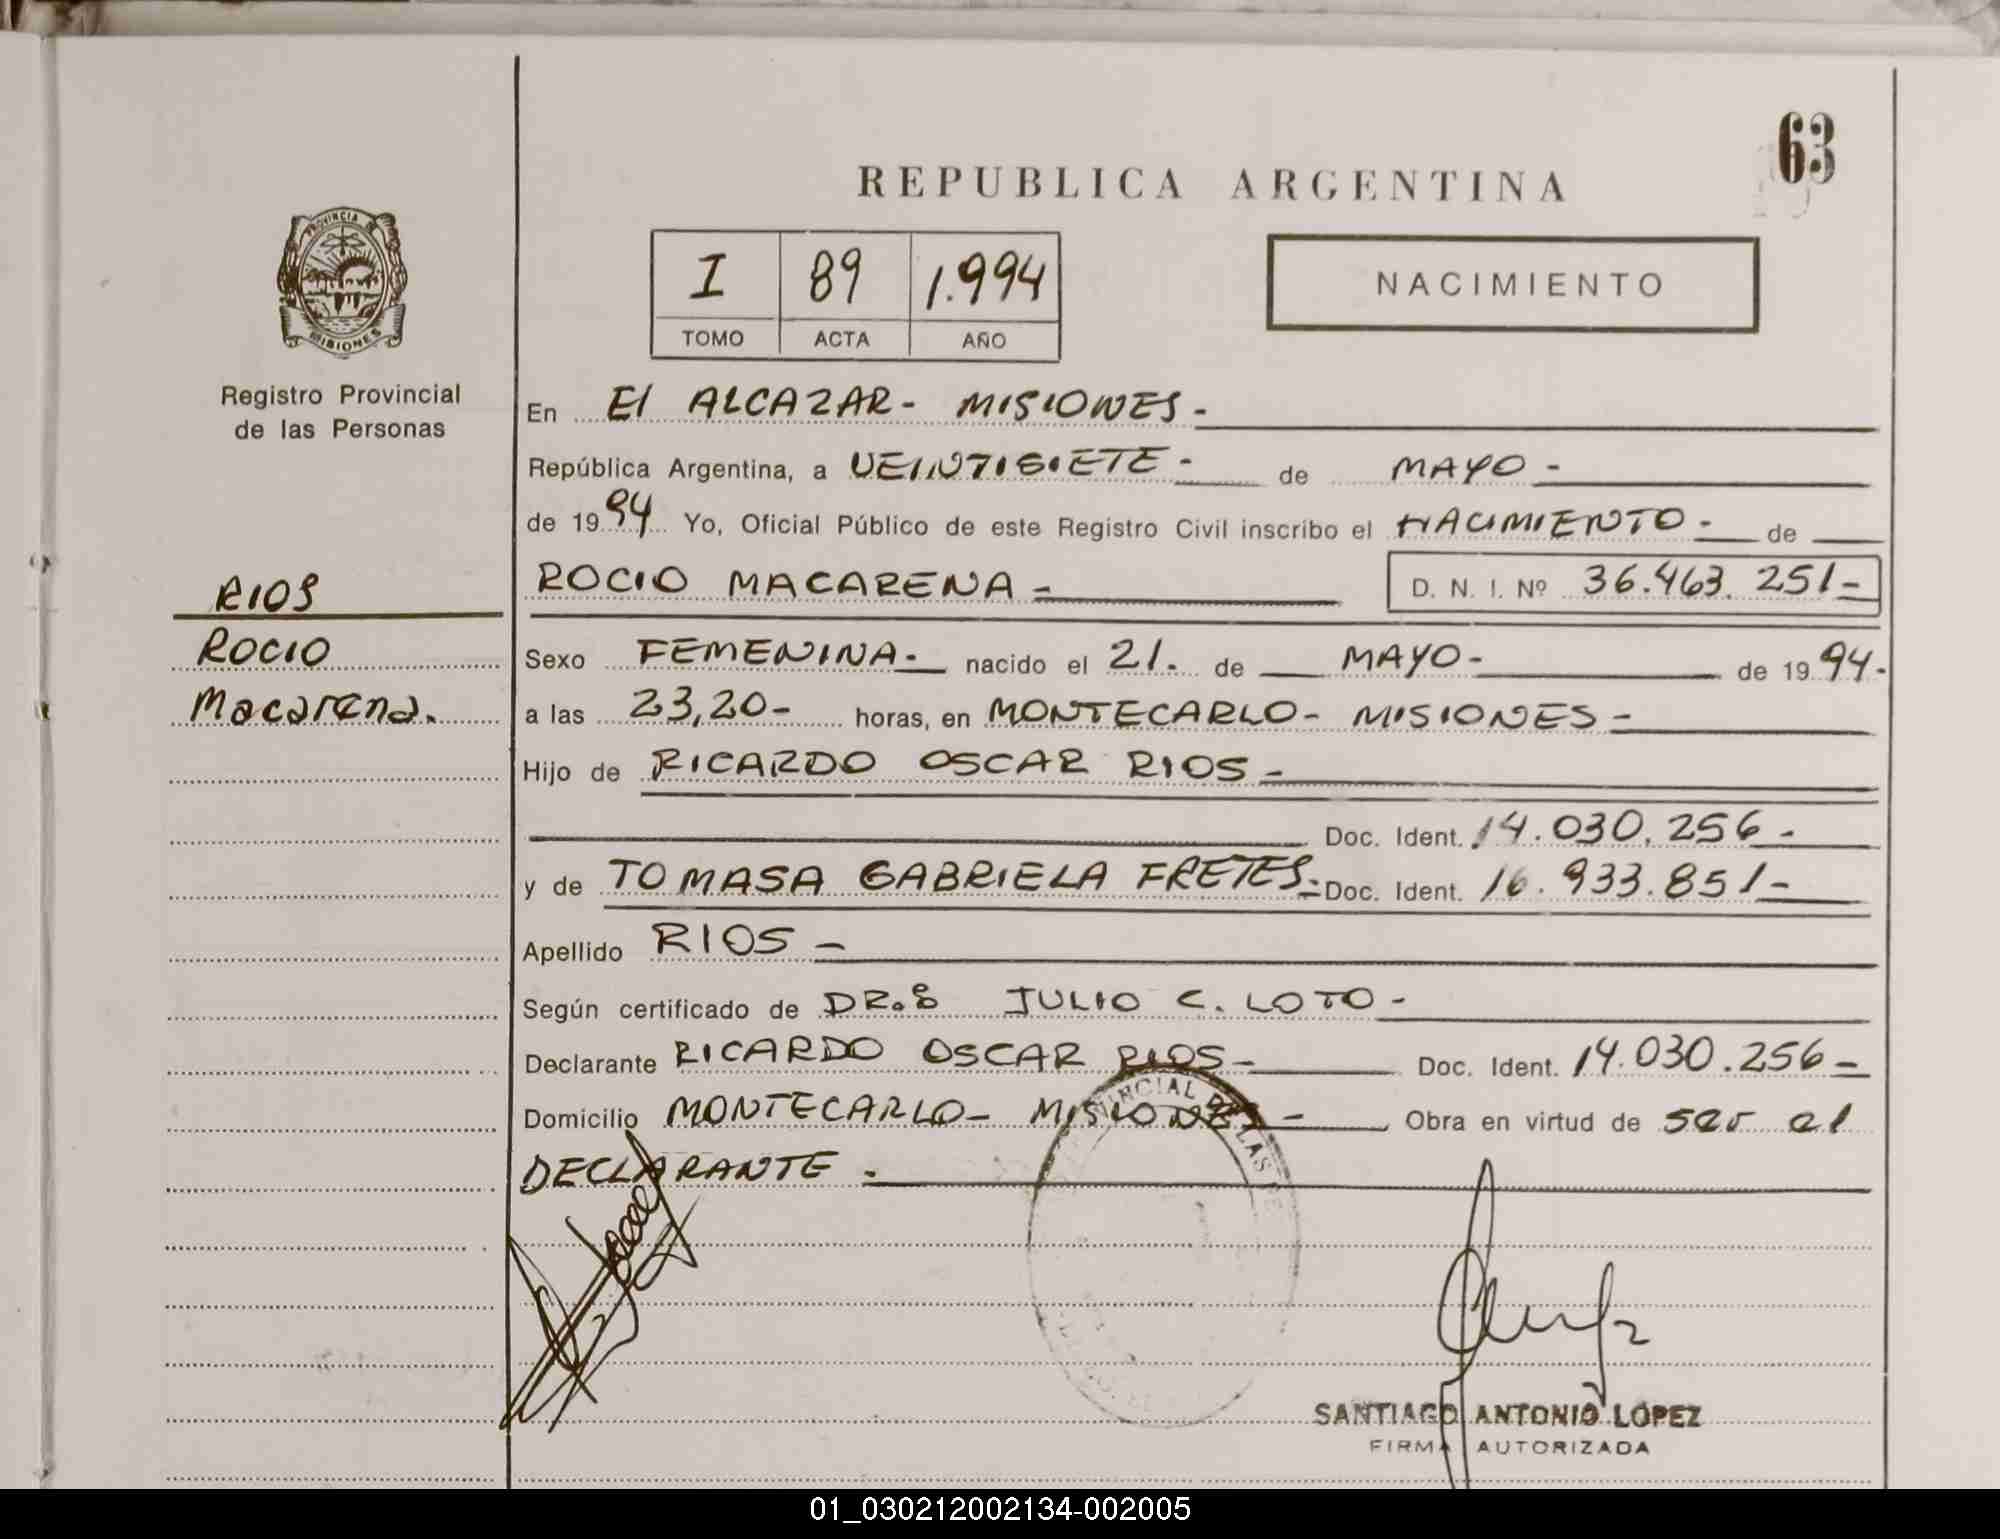 63
REPUBLICA ARGENTINA
PROVINCIA DE
MISIONES
I 89 1.994
TOMO ACTA AÑO
NACIMIENTO
Registro Provincial
de las Personas
RIOS
ROCIO
Macarena.
En El ALCAZAR - MISIONES -
República Argentina, a VEINTISIETE - de MAYO -
de 1994 Yo, Oficial Público de este Registro Civil inscribo el NACIMIENTO - de
ROCIO MACARENA - D. N. I. Nº 36.463.251-
Sexo FEMENINA - nacido el 21. de MAYO - de 1994-
a las 23,20 - horas, en MONTECARLO - MISIONES -
Hijo de RICARDO OSCAR RIOS -
Doc. Ident. 14.030.256 -
y de TOMASA GABRIELA FRETES - Doc. Ident. 16.933.851-
Apellido RIOS -
Según certificado de DR.: JULIO C. LOTO -
Declarante RICARDO OSCAR RIOS - Doc. Ident. 14.030.256 -
Domicilio MONTECARLO - MISIONES - Obra en virtud de ser el
DECLARANTE .
VINCIAL DE LAS PE
SANTIAGO ANTONIO LOPEZ
FIRMA AUTORIZADA
01_030212002134-002005